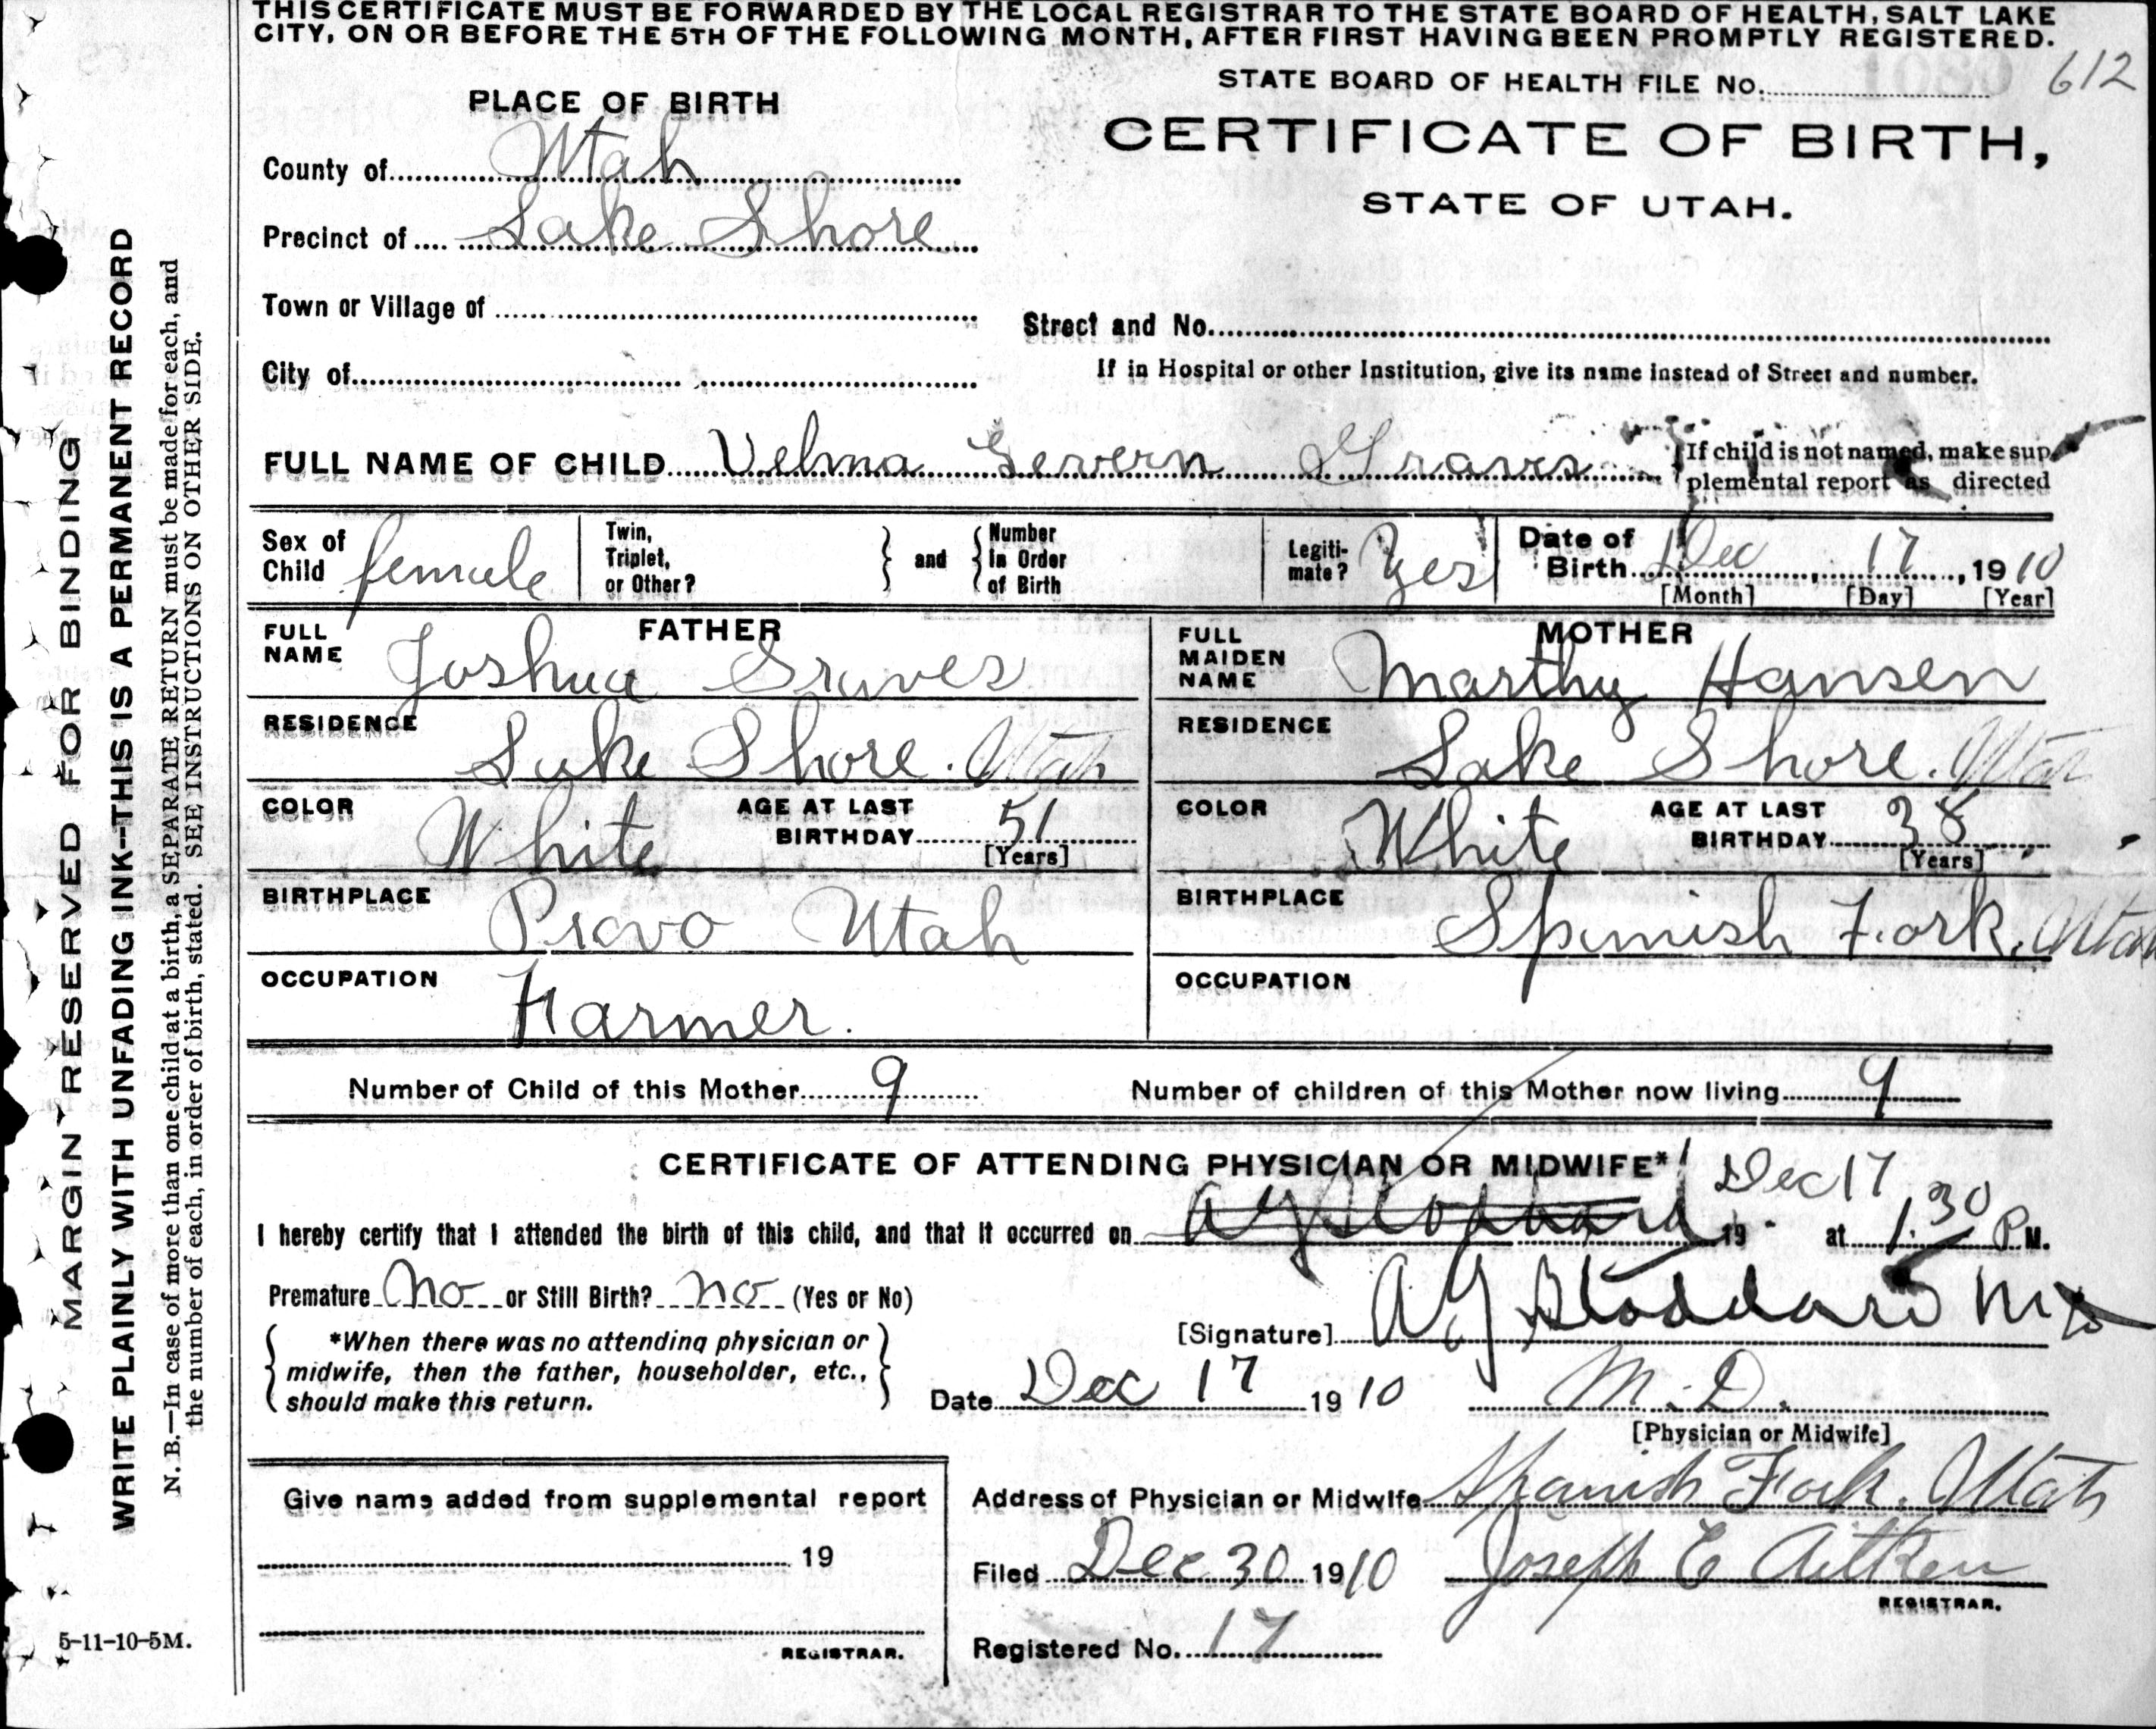 THIS CERTIFICATE MUST BE FORWARDED BY THE LOCAL REGISTRAR TO THE STATE BOARD OF HEALTH, SALT LAKE
CITY, ON OR BEFORE THE 5TH OF THE FOLLOWING MONTH, AFTER FIRST HAVING BEEN PROMPTLY REGISTERED.
STATE BOARD OF HEALTH FILE No. 612
PLACE OF BIRTH
CERTIFICATE OF BIRTH,
STATE OF UTAH.
County of Utah
Precinct of Lake Shore
Town or Village of
Street and No.
City of
If in Hospital or other Institution, give its name instead of Street and number.
FULL NAME OF CHILD Velma Severn Graves
If child is not named, make sup-
plemental report as directed
Sex of Child female
Twin, Triplet, or Other? and Number in Order of Birth
Legiti-mate? Yes
Date of Birth Dec 17, 1910
[Month] [Day] [Year]
FATHER
FULL NAME Joshua Graves
RESIDENCE Lake Shore. Utah
COLOR White AGE AT LAST BIRTHDAY 51 [Years]
BIRTHPLACE Provo Utah
OCCUPATION Farmer.
MOTHER
FULL MAIDEN NAME Marthy Hansen
RESIDENCE Lake Shore. Utah
COLOR White AGE AT LAST BIRTHDAY 38 [Years]
BIRTHPLACE Spanish Fork. Utah
OCCUPATION
Number of Child of this Mother 9 Number of children of this Mother now living 9
CERTIFICATE OF ATTENDING PHYSICIAN OR MIDWIFE*
Dec 17
I hereby certify that I attended the birth of this child, and that it occurred on 19 at 1.30 P.M.
Premature No or Still Birth? no (Yes or No)
[Signature] A J Stoddard MD
*When there was no attending physician or
midwife, then the father, householder, etc.,
should make this return.
Date Dec 17 1910 M.D.
[Physician or Midwife]
Give name added from supplemental report
19
REGISTRAR.
Address of Physician or Midwife Spanish Fork. Utah
Filed Dec 30 1910 Joseph E Aitken
REGISTRAR.
Registered No. 17
MARGIN RESERVED FOR BINDING
WRITE PLAINLY WITH UNFADING INK--THIS IS A PERMANENT RECORD
N. B.—In case of more than one child at a birth, a SEPARATE RETURN must be made for each, and
the number of each, in order of birth, stated. SEE INSTRUCTIONS ON OTHER SIDE.
5-11-10-5M.